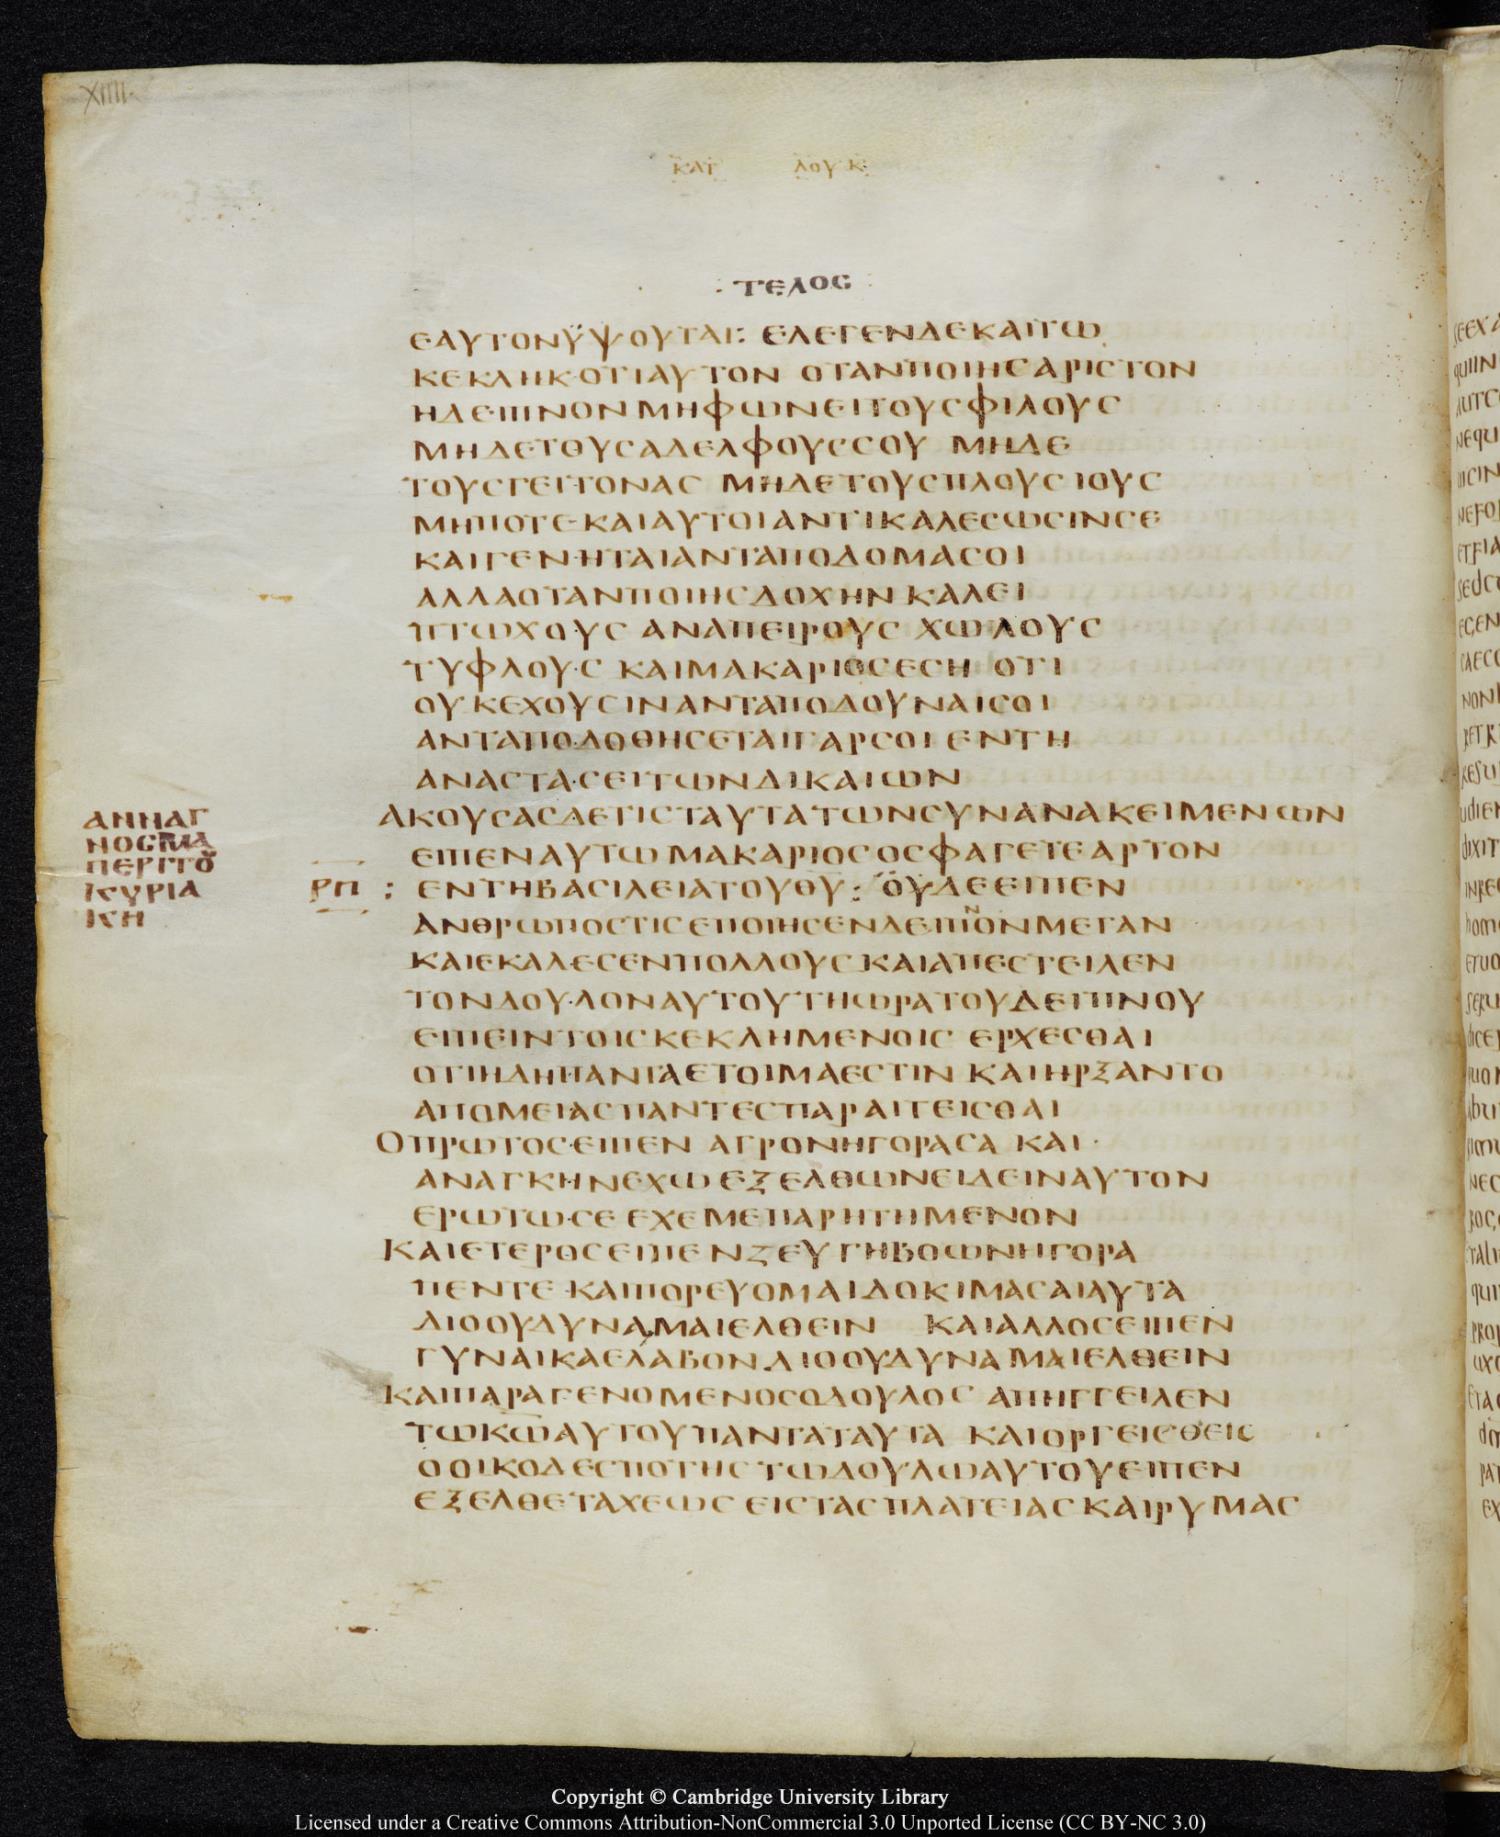 XIIII
ΚΑΤ ΛΟΥΚ
ΤΕΛΟϹ
ΕΑΥΤΟΝΫΨΟΥΤΑΙ: ΕΛΕΓΕΝΔΕΚΑΙΤΩ
ΚΕΚΛΗΚΟΤΙΑΥΤΟΝ ΟΤΑΝΠΟΙΗϹΑΡΙϹΤΟΝ
ΗΔΕΙΠΝΟΝΜΗΦΩΝΕΙΤΟΥϹΦΙΛΟΥϹ
ΜΗΔΕΤΟΥϹΑΔΕΛΦΟΥϹϹΟΥ ΜΗΔΕ
ΤΟΥϹΓΕΙΤΟΝΑϹ ΜΗΔΕΤΟΥϹΠΛΟΥϹΙΟΥϹ
ΜΗΠΟΤΕΚΑΙΑΥΤΟΙΑΝΤΙΚΑΛΕϹΩϹΙΝϹΕ
ΚΑΙΓΕΝΗΤΑΙΑΝΤΑΠΟΔΟΜΑϹΟΙ
ΑΛΛΑΟΤΑΝΠΟΙΗϹΔΟΧΗΝ ΚΑΛΕΙ
ΠΤΩΧΟΥϹ ΑΝΑΠΕΙΡΟΥϹ ΧΩΛΟΥϹ
ΤΥΦΛΟΥϹ ΚΑΙΜΑΚΑΡΙΟϹΕϹΗ ΟΤΙ
ΟΥΚΕΧΟΥϹΙΝΑΝΤΑΠΟΔΟΥΝΑΙϹΟΙ
ΑΝΤΑΠΟΔΟΘΗϹΕΤΑΙΓΑΡϹΟΙ ΕΝΤΗ
ΑΝΑϹΤΑϹΕΙΤΩΝΔΙΚΑΙΩΝ
ΑΚΟΥϹΑϹΔΕΤΙϹΤΑΥΤΑΤΩΝϹΥΝΑΝΑΚΕΙΜΕΝΩΝ
ΑΝΝΑΓ
ΝΟϹΜΑ
ΠΕΡΙΤΟ̅
ΚΥΡΙΑ
ΚΗ
ΕΙΠΕΝΑΥΤΩΜΑΚΑΡΙΟϹΟϹΦΑΓΕΤΕΑΡΤΟΝ
ΡΠ : ΕΝΤΗΒΑϹΙΛΕΙΑΤΟΥΘΥ: ΟΥΔΕΕΙΠΕΝ
ΑΝΘΡΩΠΟϹΤΙϹΕΠΟΙΗϹΕΝΔΕΙΠΝΟΝΜΕΓΑΝ
ΚΑΙΕΚΑΛΕϹΕΝΠΟΛΛΟΥϹΚΑΙΑΠΕϹΤΕΙΛΕΝ
ΤΟΝΔΟΥΛΟΝΑΥΤΟΥΤΗΩΡΑΤΟΥΔΕΙΠΝΟΥ
ΕΙΠΕΙΝΤΟΙϹΚΕΚΛΗΜΕΝΟΙϹ ΕΡΧΕϹΘΑΙ
ΟΤΙΗΔΗΠΑΝΤΑΕΤΟΙΜΑΕϹΤΙΝ ΚΑΙΗΡΞΑΝΤΟ
ΑΠΟΜΕΙΑϹΠΑΝΤΕϹΠΑΡΑΙΤΕΙϹΘΑΙ
ΟΠΡΩΤΟϹΕΙΠΕΝ ΑΓΡΟΝΗΓΟΡΑϹΑ ΚΑΙ
ΑΝΑΓΚΗΝΕΧΩΕΞΕΛΘΩΝΕΙΔΕΙΝΑΥΤΟΝ
ΕΡΩΤΩϹΕ ΕΧΕΜΕΠΑΡΗΤΗΜΕΝΟΝ
ΚΑΙΕΤΕΡΟϹΕΙΠΕΝΖΕΥΓΗΒΟΩΝΗΓΟΡΑ
ΠΕΝΤΕ ΚΑΙΠΟΡΕΥΟΜΑΙΔΟΚΙΜΑϹΑΙΑΥΤΑ
ΔΙΟΟΥΔΥΝΑΜΑΙΕΛΘΕΙΝ ΚΑΙΑΛΛΟϹΕΙΠΕΝ
ΓΥΝΑΙΚΑΕΛΑΒΟΝΔΙΟΟΥΔΥΝΑΜΑΙΕΛΘΕΙΝ
ΚΑΙΠΑΡΑΓΕΝΟΜΕΝΟϹΟΔΟΥΛΟϹ ΑΠΗΓΓΕΙΛΕΝ
ΤΩΚΩ̅ΑΥΤΟΥΠΑΝΤΑΤΑΥΤΑ ΚΑΙΟΡΓΕΙϹΘΕΙϹ
ΟΟΙΚΟΔΕϹΠΟΤΗϹΤΩΔΟΥΛΩΑΥΤΟΥΕΙΠΕΝ
ΕΞΕΛΘΕΤΑΧΕΩϹ ΕΙϹΤΑϹΠΛΑΤΕΙΑϹΚΑΙΡΥΜΑϹ
Copyright © Cambridge University Library
Licensed under a Creative Commons Attribution-NonCommercial 3.0 Unported License (CC BY-NC 3.0)